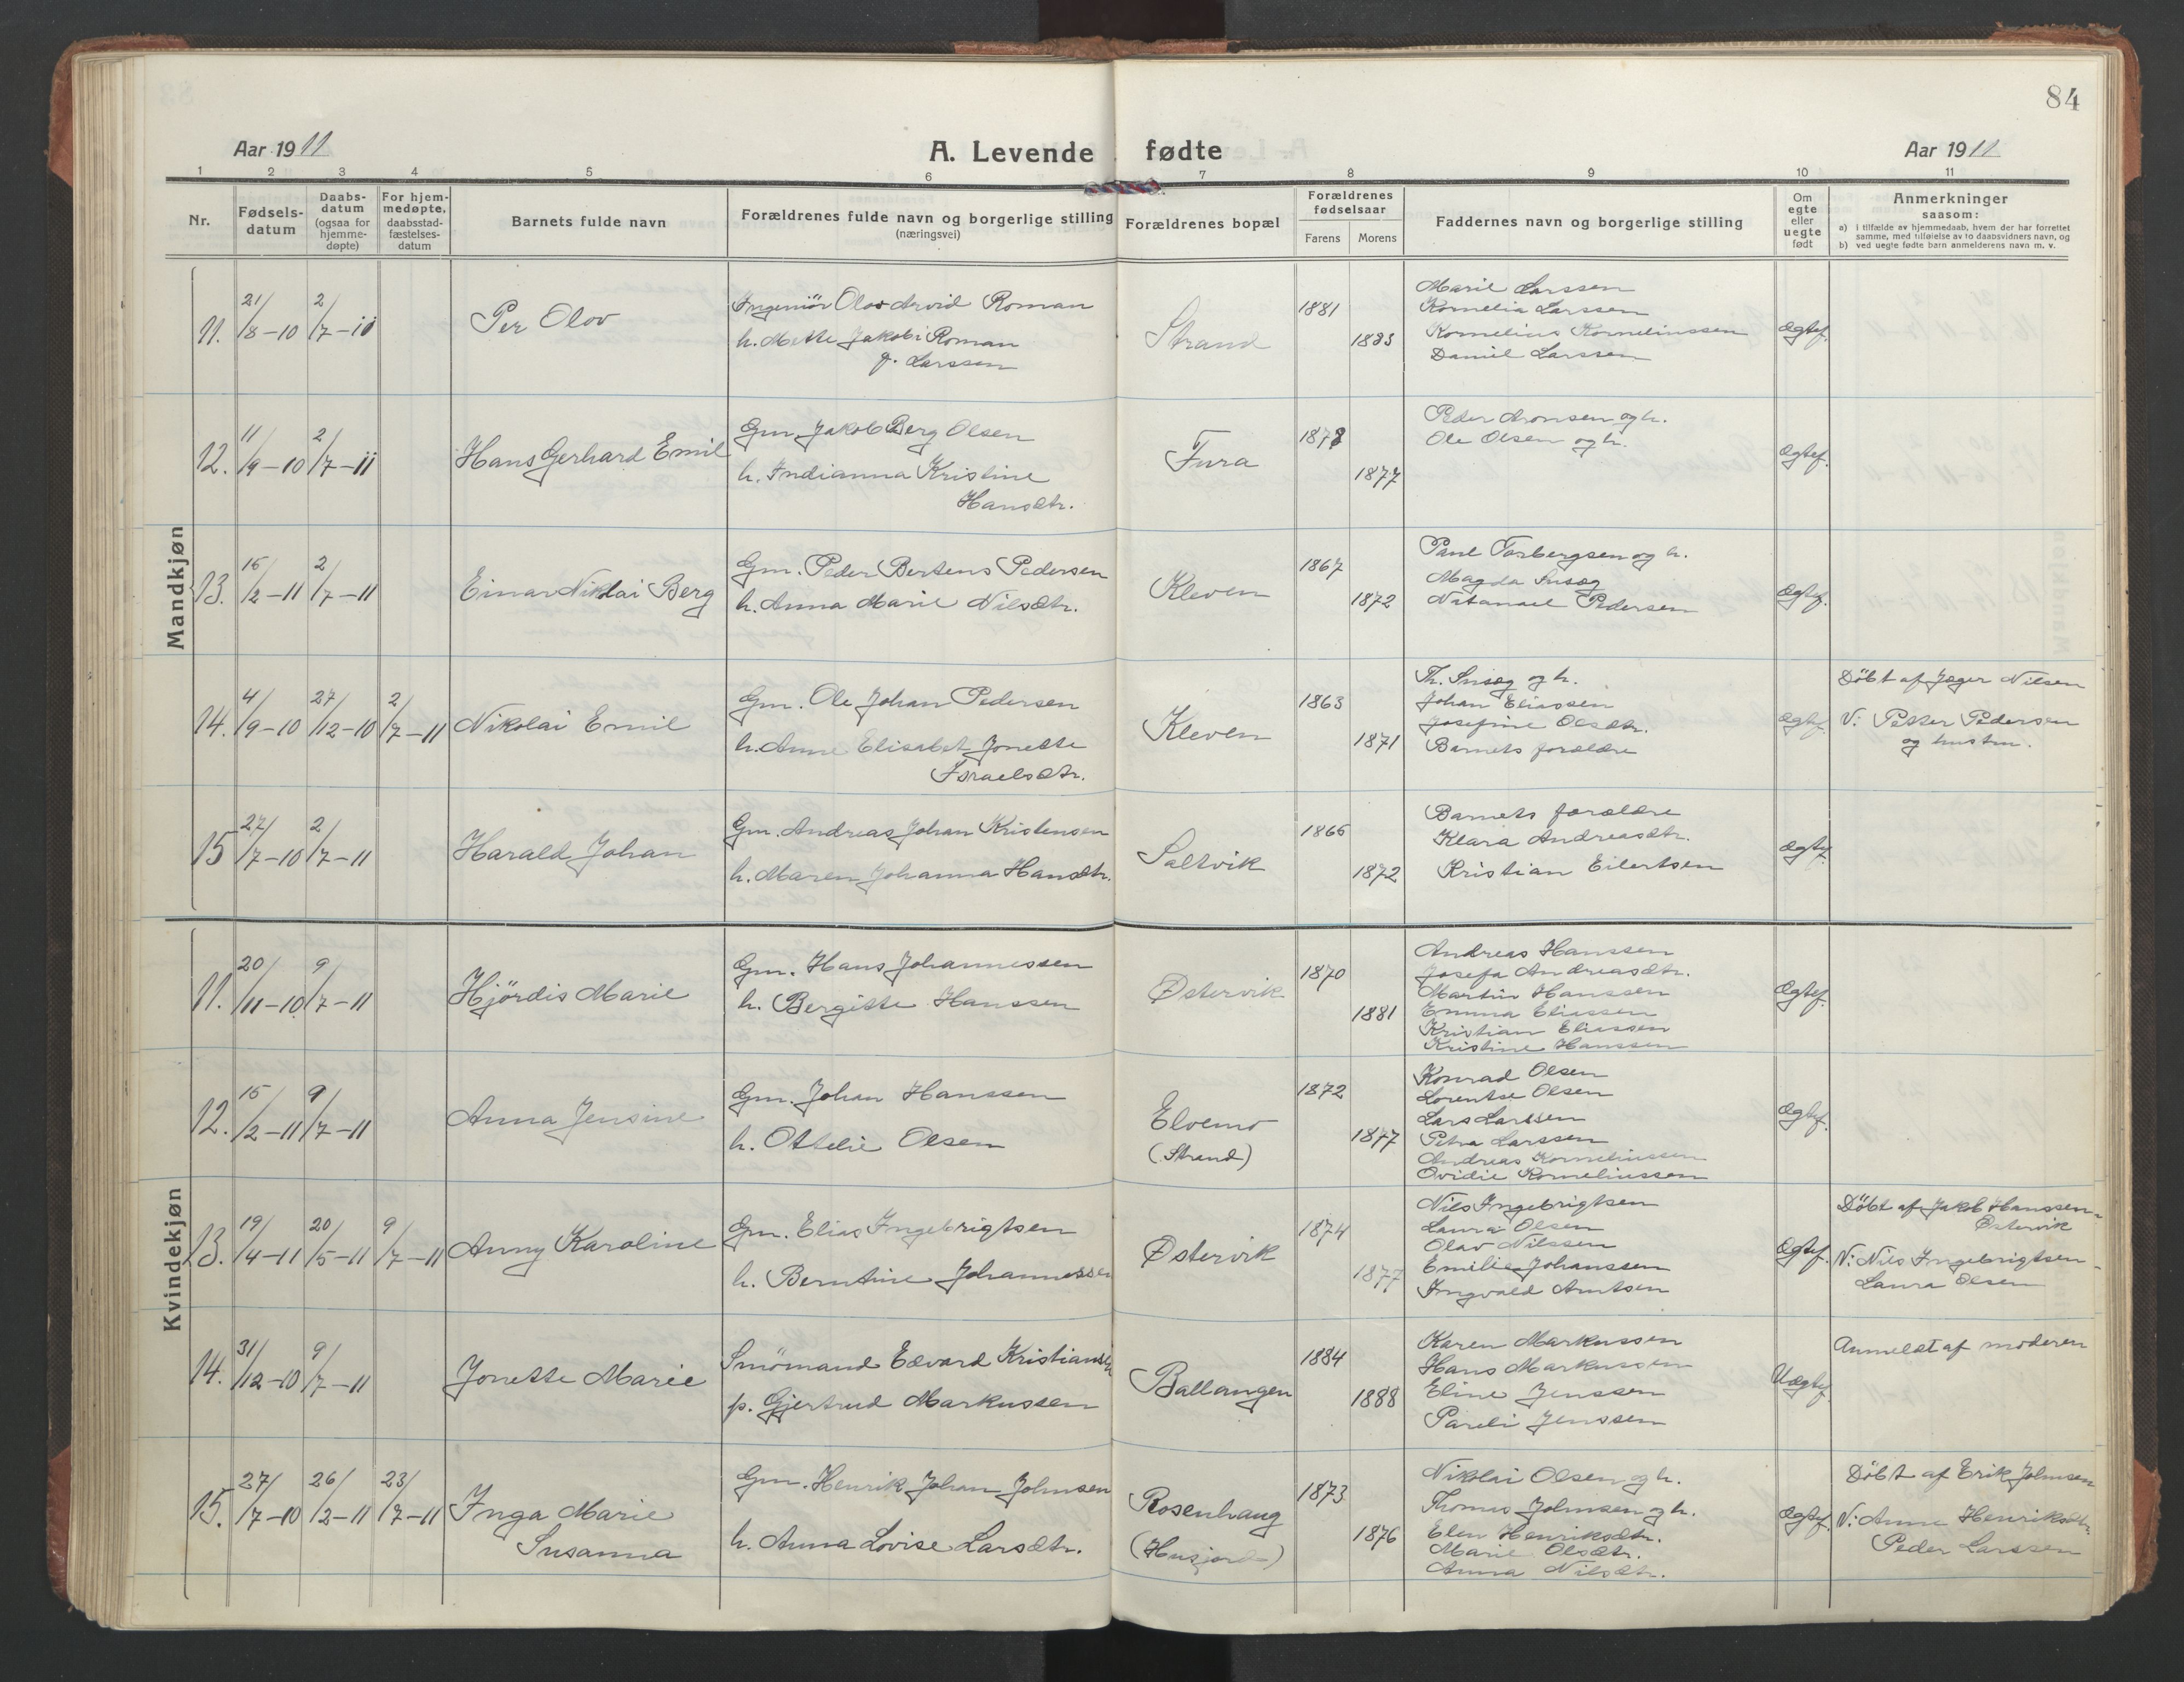 84
Aar 1911
A. Levende fødte
Aar 1911
1 2 3 4 5 6 7 8 9 10 11
Nr.
Fødsels-
datum
Daabs-
datum
(ogsaa for
hjemme-
døpte)
For hjem-
medøpte,
daabsstad-
fæstelses-
datum
Barnets fulde navn
Forældrenes fulde navn og borgerlige stilling
(næringsvei)
Forældrenes bopæl
Forældrenes
fødselsaar
Farens Morens
Faddernes navn og borgerlige stilling
Om
egte
eller
uegte
født
Anmerkninger
saasom:
a) i tilfælde av hjemmedaab, hvem der har forrettet
samme, med tilføielse av to daabsvidners navn, og
b) ved uegte fødte barn anmelderens navn m. v.
Mandkjøn
11. 21/8-10 2/7-11
Per Olov
Ingeniör Olov Arvid Roman
h. Mette Jakobi Roman
f. Larssen
Strand
1881
1883
Marie Larssen
Kornelia Larssen
Kornelius Korneliussen
Daniel Larssen
Ægtef.
12. 11/9-10 2/7-11
Hans Gerhard Emil
Gm Jakob Berg Olsen
h. Indianna Kristine
Hansdtr.
Fura
1878
1877
Peder Aronsen og h.
Ole Olsen og h.
Ægtef.
13. 16/2-11 2/7-11
Einar Nikolai Berg
Gm. Peder Bertens Pedersen
h. Anna Marie Nilsdtr.
Kleven
1867
1872
Paul Torbergsen og h.
Magda Snsøg
Natanael Pedersen
Ægtef.
14. 4/9-10 27/12-10 2/7-11
Nikolai Emil
Gm. Ole Johan Pedersen
h. Anne Elisabet Jonette
Israelsdtr.
Kleven
1863
1871
Th. Snsøg og h.
Johan Eliassen
Josefine Olsdtr.
Barnets forældre
Ægtef.
Döbt af Jæger Nilsen
V: Petter Pedersen
og hustru.
15 27/7-10 2/7-11
Harald Johan
Gm. Andreas Johan Kristensen
h. Maren Johanna Hansdtr.
Saltvik
1866
1872
Barnets forældre
Klara Andreasdtr.
Kristian Eilertsen
Ægtef.
Kvindekjøn
11. 20/11-10 9/7-11
Hjördis Marie
Gm. Hans Johannessen
h. Bergitte Hanssen
Østervik
1870
1881
Andreas Hanssen
Josefa Andreasdtr.
Martin Hanssen
Emma Eliassen
Kristian Eliassen
Kristine Hanssen
Ægtef.
12. 15/2-11 9/7-11
Anna Jensine
Gm. Johan Hanssen
h. Ottelie Olsen
Elvemo
(Strand)
1872
1877
Konrad Olsen
Lorentse Olsen
Lars Larssen
Petra Larssen
Andreas Korneliussen
Ovidie Korneliussen
Ægtef.
13. 19/4-11 20/5-11 9/7-11
Anny Karoline
Gm. Elias Ingebrigtsen
h. Berntine Johannessen
Østervik
1874
1877
Nils Ingebrigtsen
Laura Olsen
Olav Nilssen
Emilie Johanssen
Ingvald Arntsen
Ægtef.
Döbt af Jakob Hanssen-
Østervik
V: Nils Ingebrigtsen-
Laura Olsen
14. 31/12-10 9/7-11
Jonette Marie
Smömand Edvard Kristiansen
p. Gjertrud Markussen
Ballangen
1884
1888
Karen Markussen
Hans Markussen
Eline Jenssen
Pareli Jenssen
Uægtef.
Anmeldt af moderen
15. 27/7-10 26/2-11 23/7-11
Inga Marie
Susanna
Gm. Henrik Johan Johnsen
h. Anna Lovise Larsdtr.
Rosenhaug
(Husjord)
1873
1876
Nikolai Olsen og h.
Thomas Johnsen og h.
Elen Henriksdtr.
Marie Olsdtr.
Anna Nilsdtr.
Ægtef.
Döbt af Erik Johnsen
V: Anne Henriksdtr.
Peder Larssen